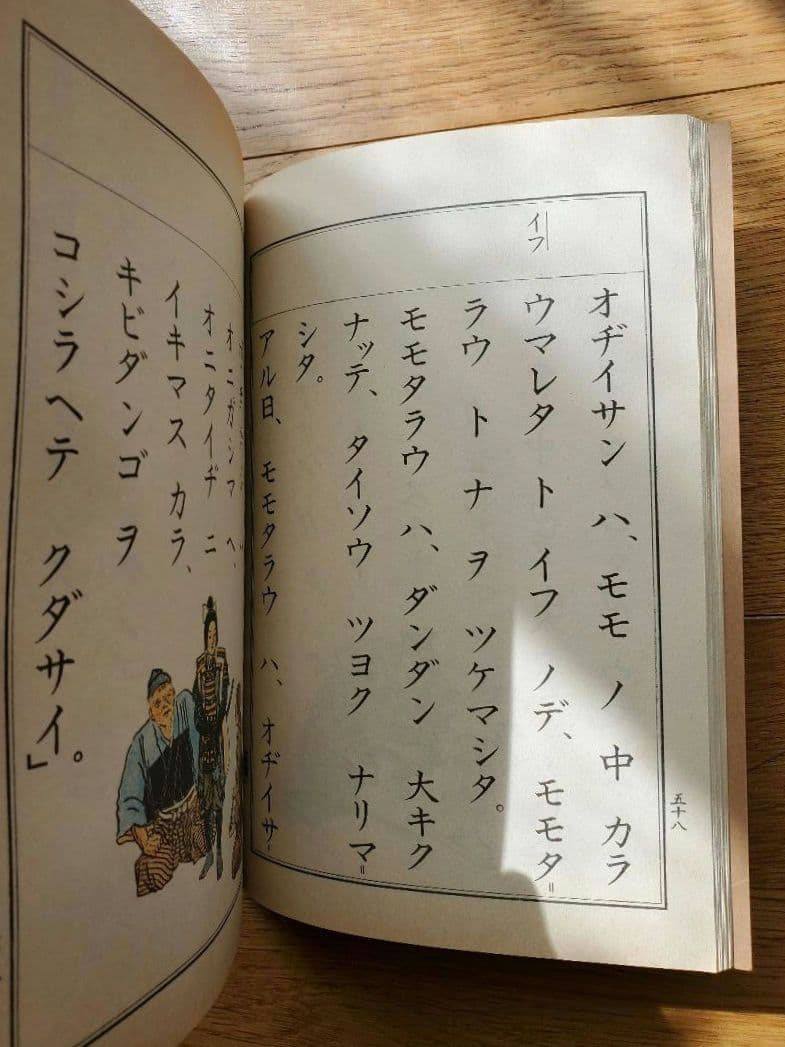 五十八
イフ
オヂイサン ハ、 モモ ノ 中 カラ
ウマレタ ト イフ ノデ、 モモタ=
ラウ ト ナ ヲ ツケマシタ。
モモタラウ ハ、 ダンダン 大キク
ナッテ、 タイソウ ツヨク ナリマ=
シタ。
アル日、 モモタラウ ハ、 オヂイサ=
オニガシマ ヘ、
オニタイヂ ニ
イキマス カラ、
キビダンゴ ヲ
コシラヘテ クダサイ。」